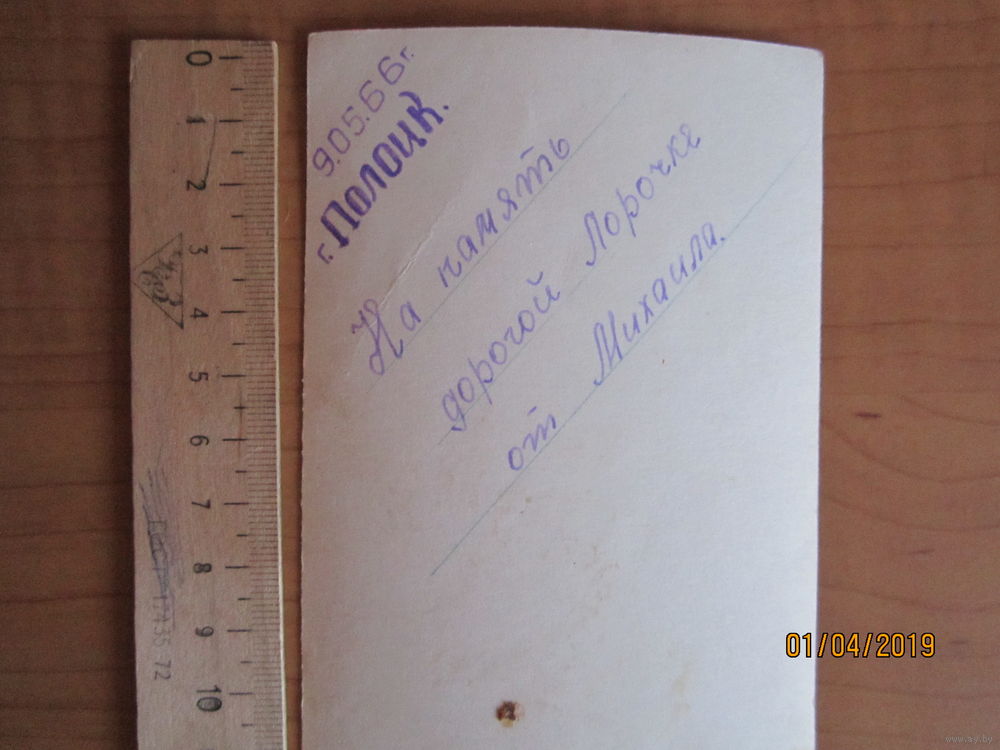 9.05.66г.
г. Полоцк.
На память
дорогой Лорочке
от Михаила.
0
1
2
3
4
5
6
7
8
9
10
72
01/04/2019
www.ay.by